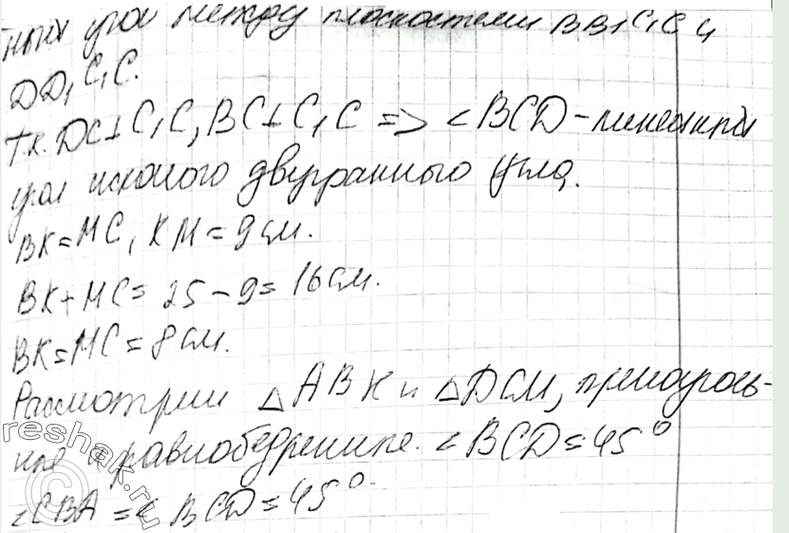 угол между плоскостями BB₁C₁C и
DD₁C₁C.
Т.к. DC⊥C₁C, BC⊥C₁C => ∠BCD – линейный
угол искомого двугранного угла.
BK=MC, KM=9см.
BK+MC=25-9=16см.
BK=MC=8см.
Рассмотрим △ABK и △DCM, прямоуголь-
ные и равнобедренные. ∠BCD=45°
∠CBA=∠BCD=45°.
reshak.ru